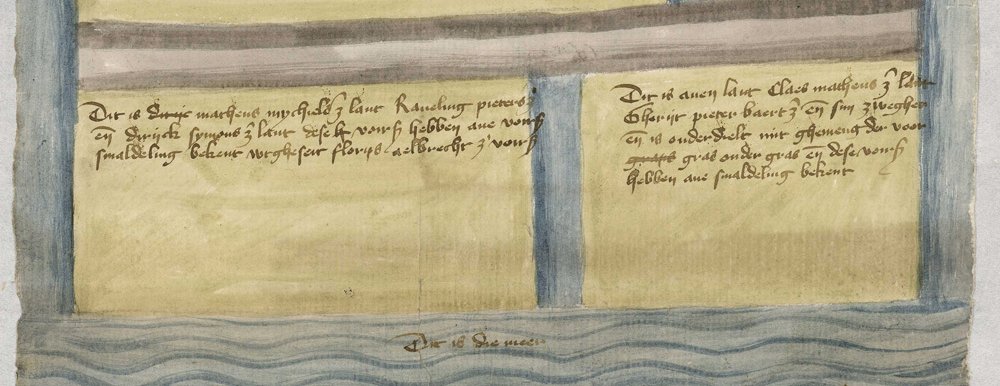 Dit is dirije matheus mychiels z̃ lant Raveling pieters z̃
en̄ dirijck symons z̃ lant dese bt voirs̃ hebben ane voirs̃
smaldeling bekent wtgheseit florys aelbrecht z̃ voirs̃
Dit is aven lant Claes matheus z̃ lant
Gherijt pieter baert z̃ en̄ sin zwegher
en̄ is onderdeelt mit ghemeng der voor
gras onder gras en̄ dese voirs̃
hebben ane smaldeling bekent
Dit is die meer